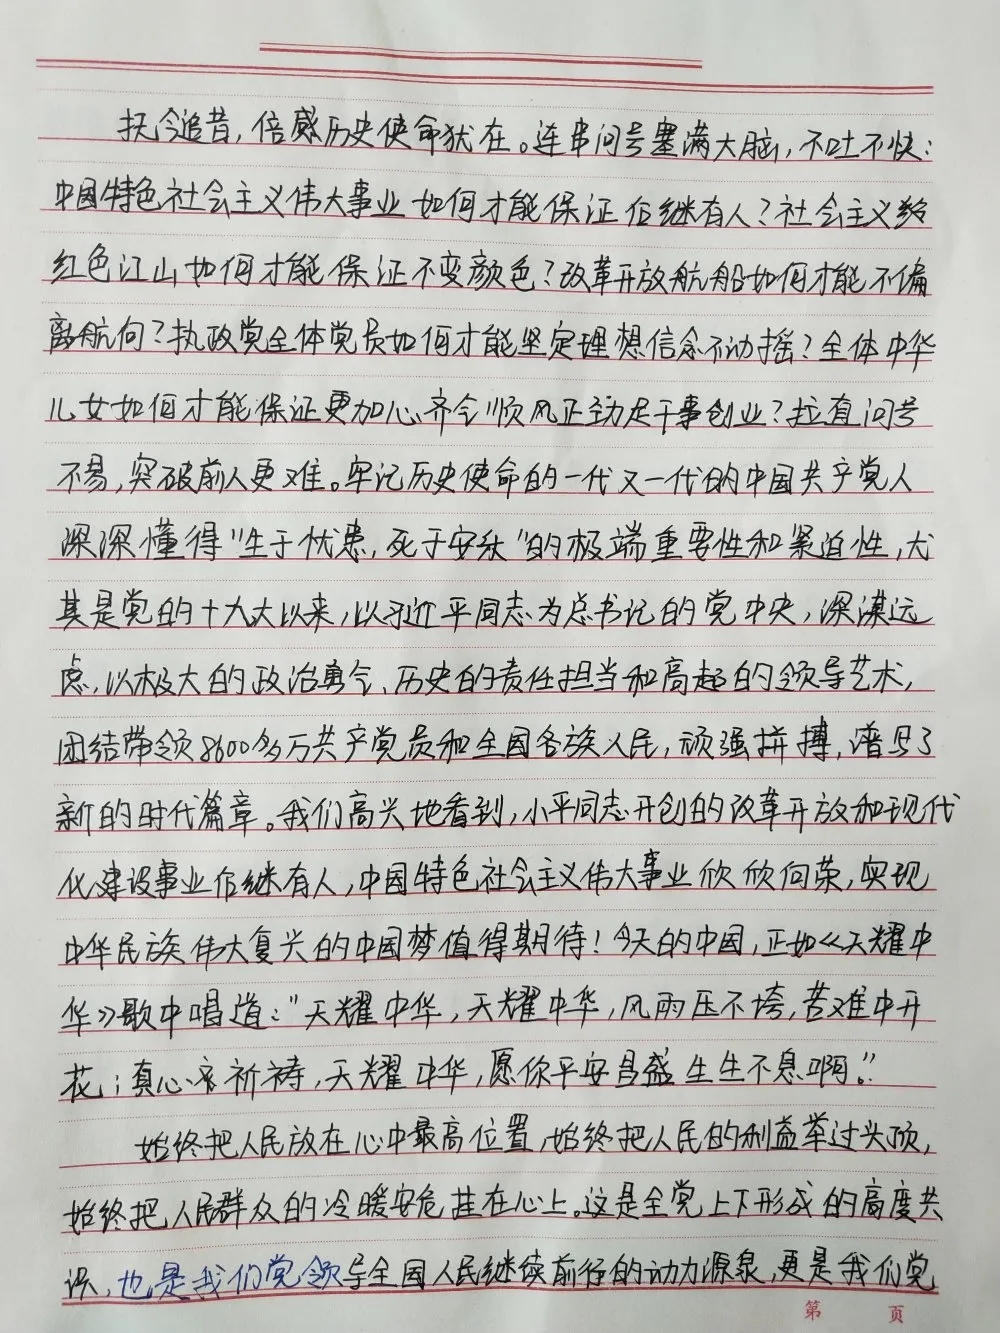 抚今追昔，倍感历史使命犹在。连串问号塞满大脑，不吐不快：
中国特色社会主义伟大事业如何才能保证后继有人？社会主义
红色江山如何才能保证不变颜色？改革开放航船如何才能不偏
离航向？执政党全体党员如何才能坚定理想信念不动摇？全体中华
儿女如何才能保证更加心齐令顺风正劲足干事创业？拉直问号
不易，突破前人更难。牢记历史使命的一代又一代的中国共产党人
深深懂得"生于忧患，死于安乐"的极端重要性和紧迫性，尤
其是党的十九大以来，以习近平同志为总书记的党中央，深谋远
虑，以极大的政治勇气、历史的责任担当和高超的领导艺术，
团结带领8600多万共产党员和全国各族人民，顽强拼搏，谱写了
新的时代篇章。我们高兴地看到，小平同志开创的改革开放和现代
化建设事业后继有人，中国特色社会主义伟大事业欣欣向荣，实现
中华民族伟大复兴的中国梦值得期待！今天的中国，正如《天耀中
华》歌中唱道："天耀中华，天耀中华，风雨压不垮，苦难中开
花；真心祈祷，天耀中华，愿你平安昌盛生生不息啊。"
始终把人民放在心中最高位置，始终把人民的利益举过头顶，
始终把人民群众的冷暖安危挂在心上。这是全党上下形成的高度共
识，也是我们党领导全国人民继续前行的动力源泉，更是我们党
第 页